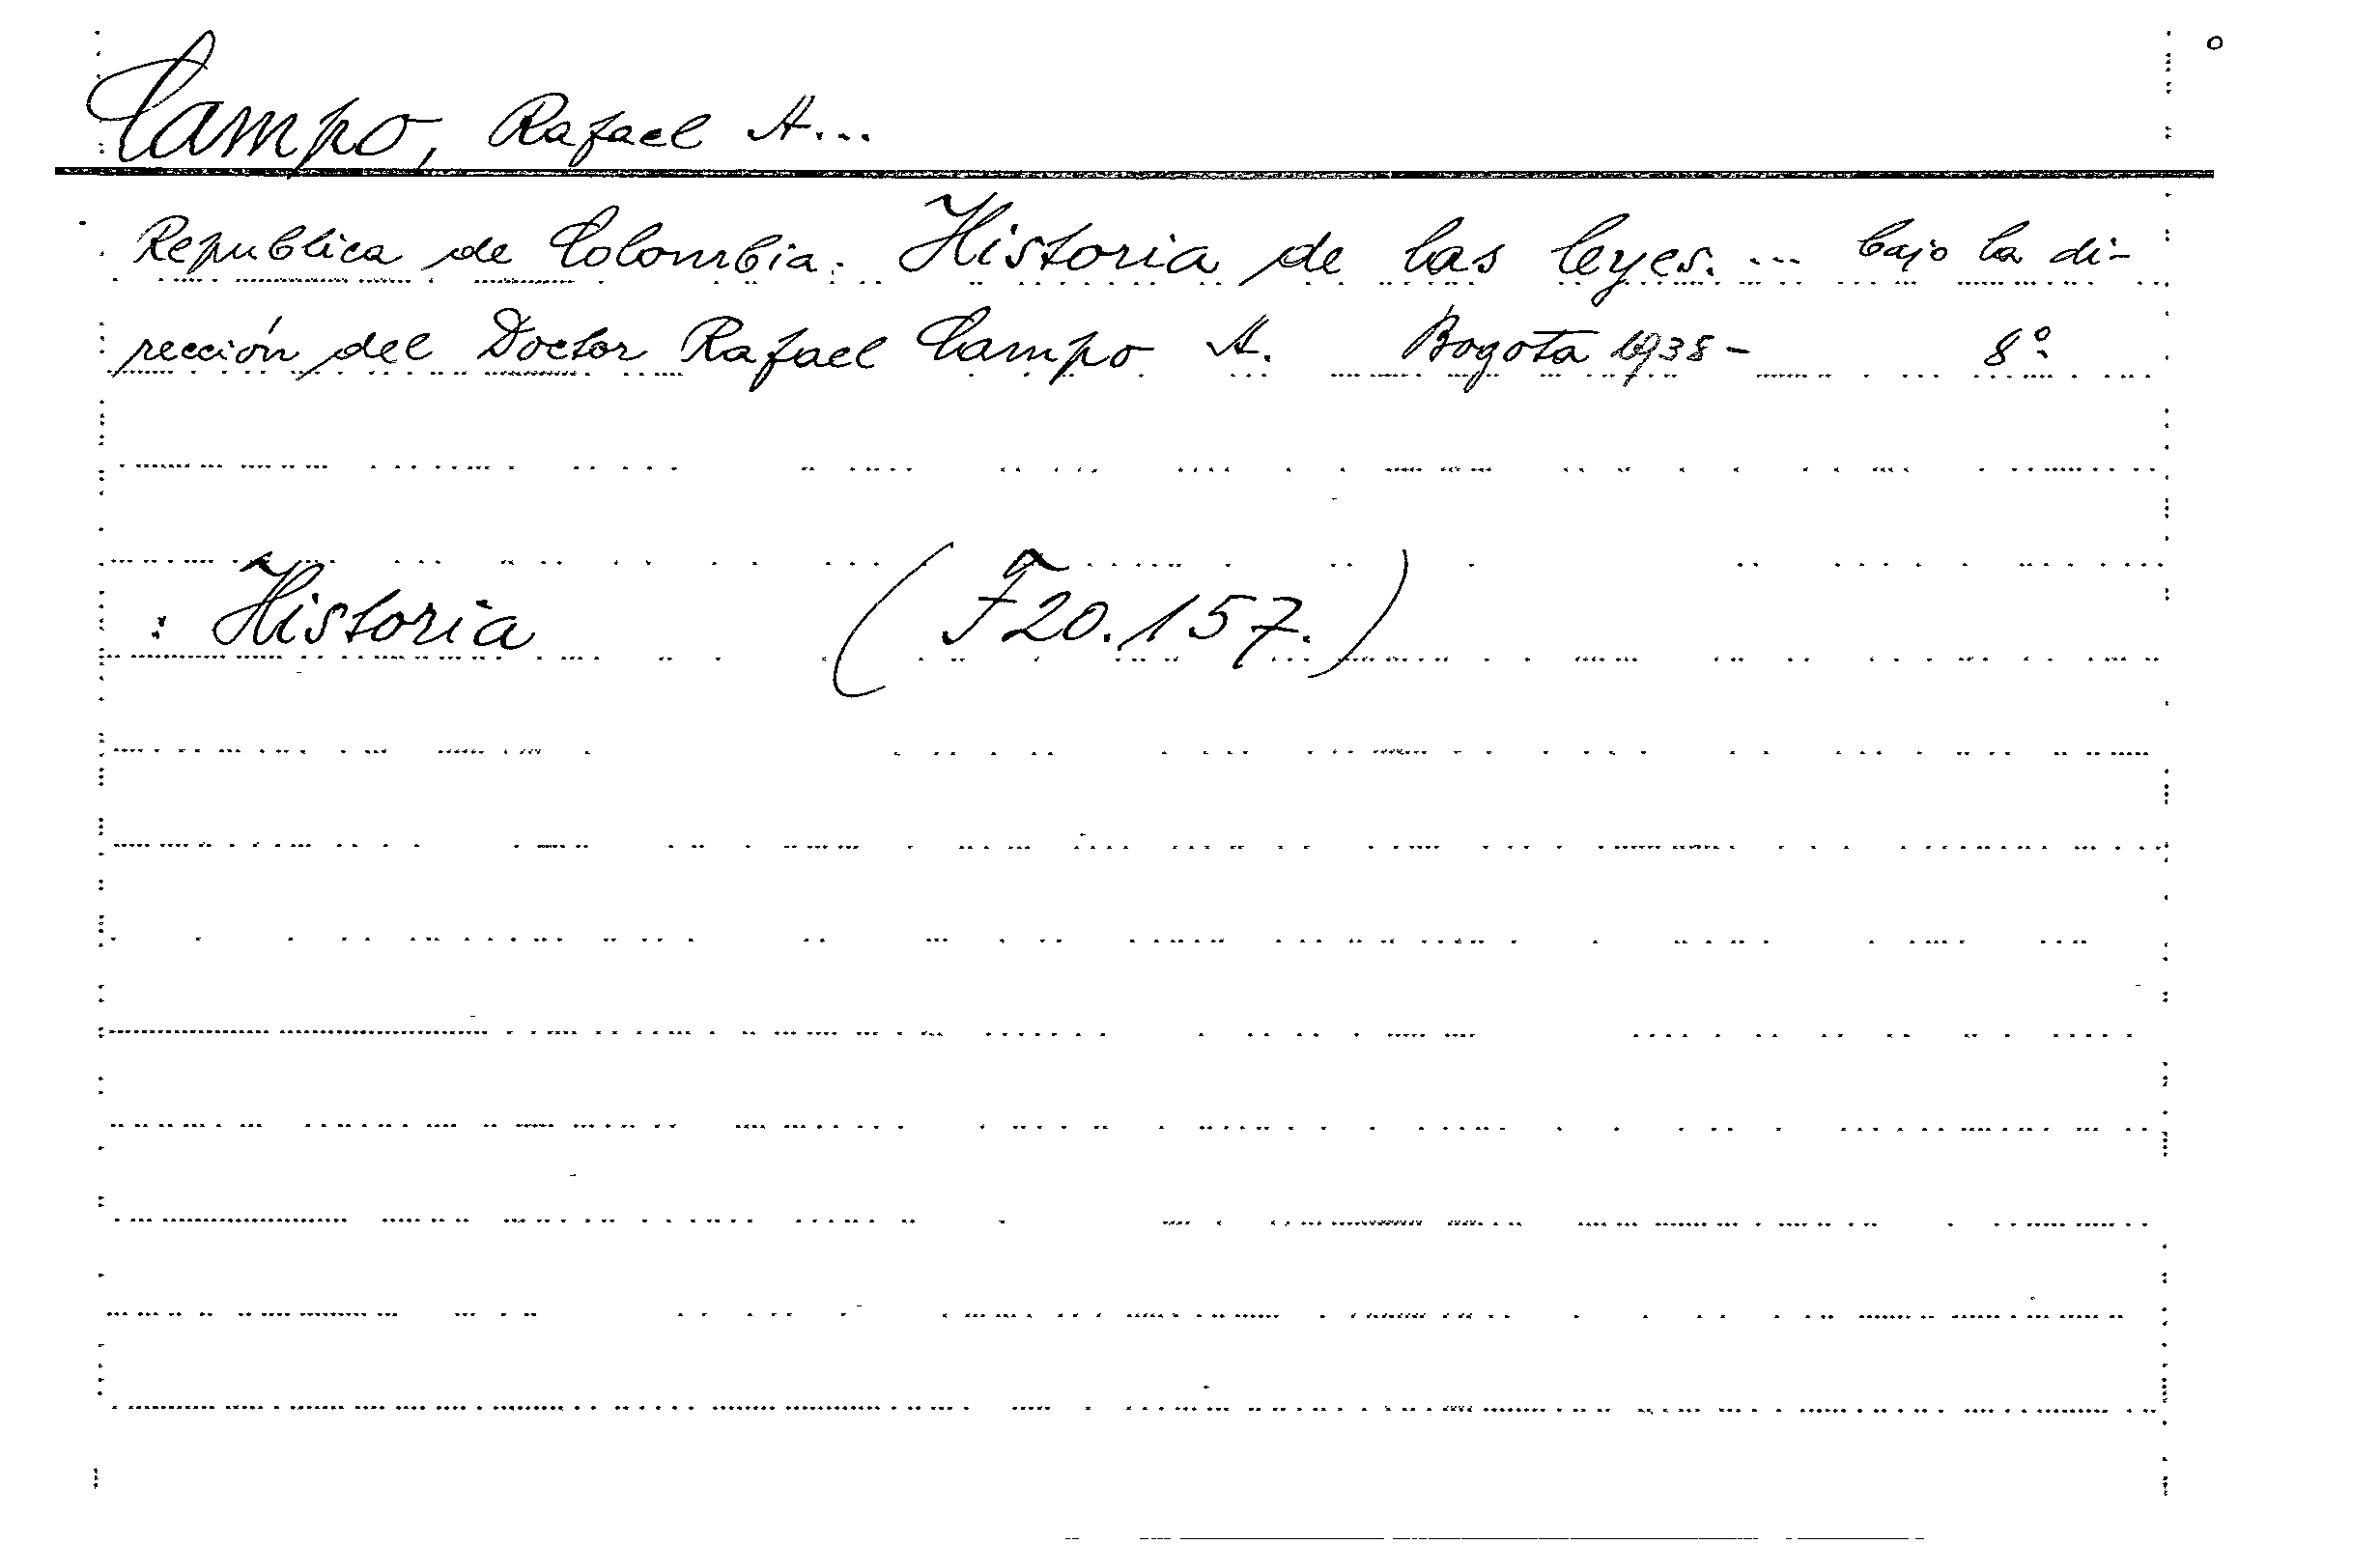 Campo, Rafael A...
Republica de Colombia. Historia de las leyes. ... bajo la di-
rección del Doctor Rafael Campo A. Bogota 1938- 8º
: Historia (F20.157.)